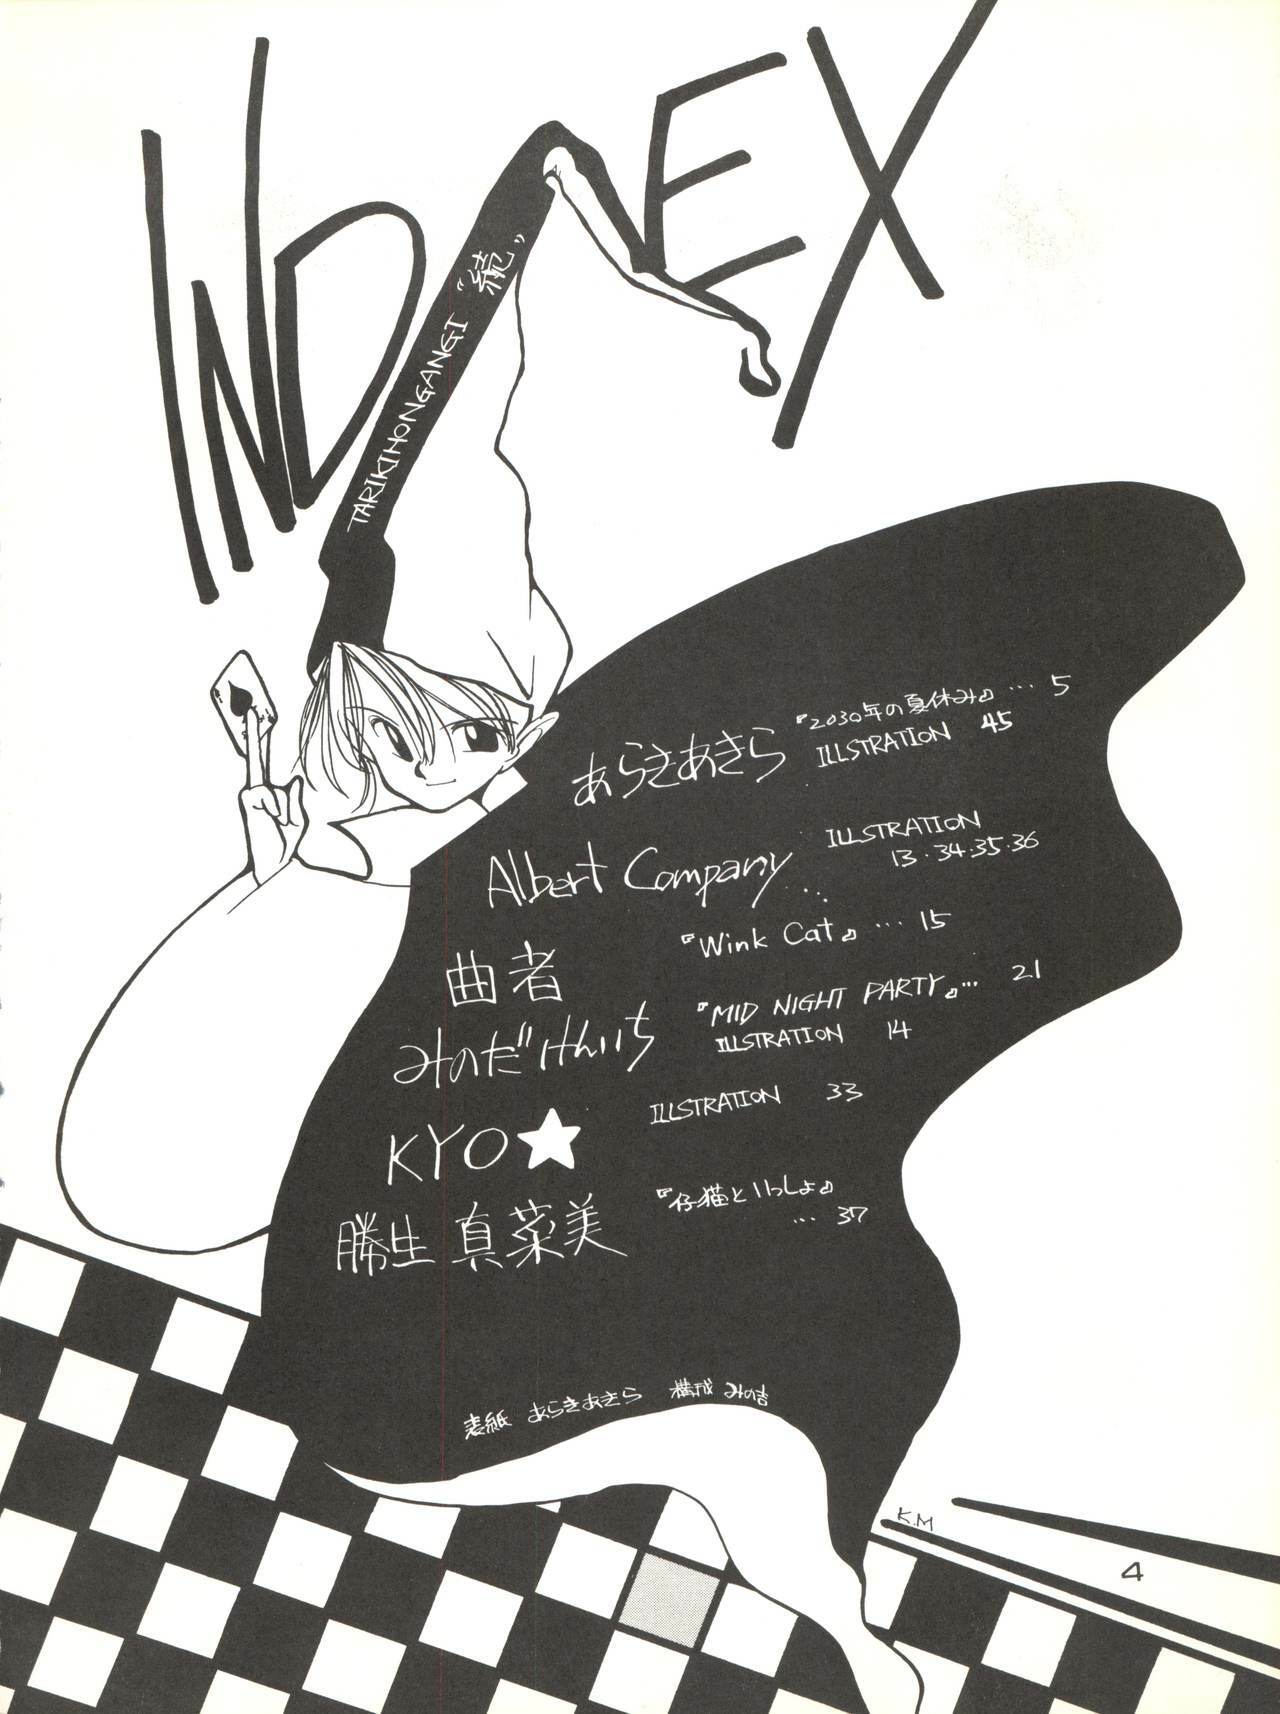 INDEX
TARIKIHONGANGI "続"
あらきあきら
『2030年の夏休み』… 5
ILLSTRATION 45
Albert Company
ILLSTRATION
13・34・35・36
曲者
『Wink Cat』… 15
みのだけんいち
『MID NIGHT PARTY』… 21
ILLSTRATION 14
KYO★
ILLSTRATION 33
勝生 真菜美
『仔猫といっしょ』
… 37
表紙 あらきあきら 構成 みの吉
K.M
4